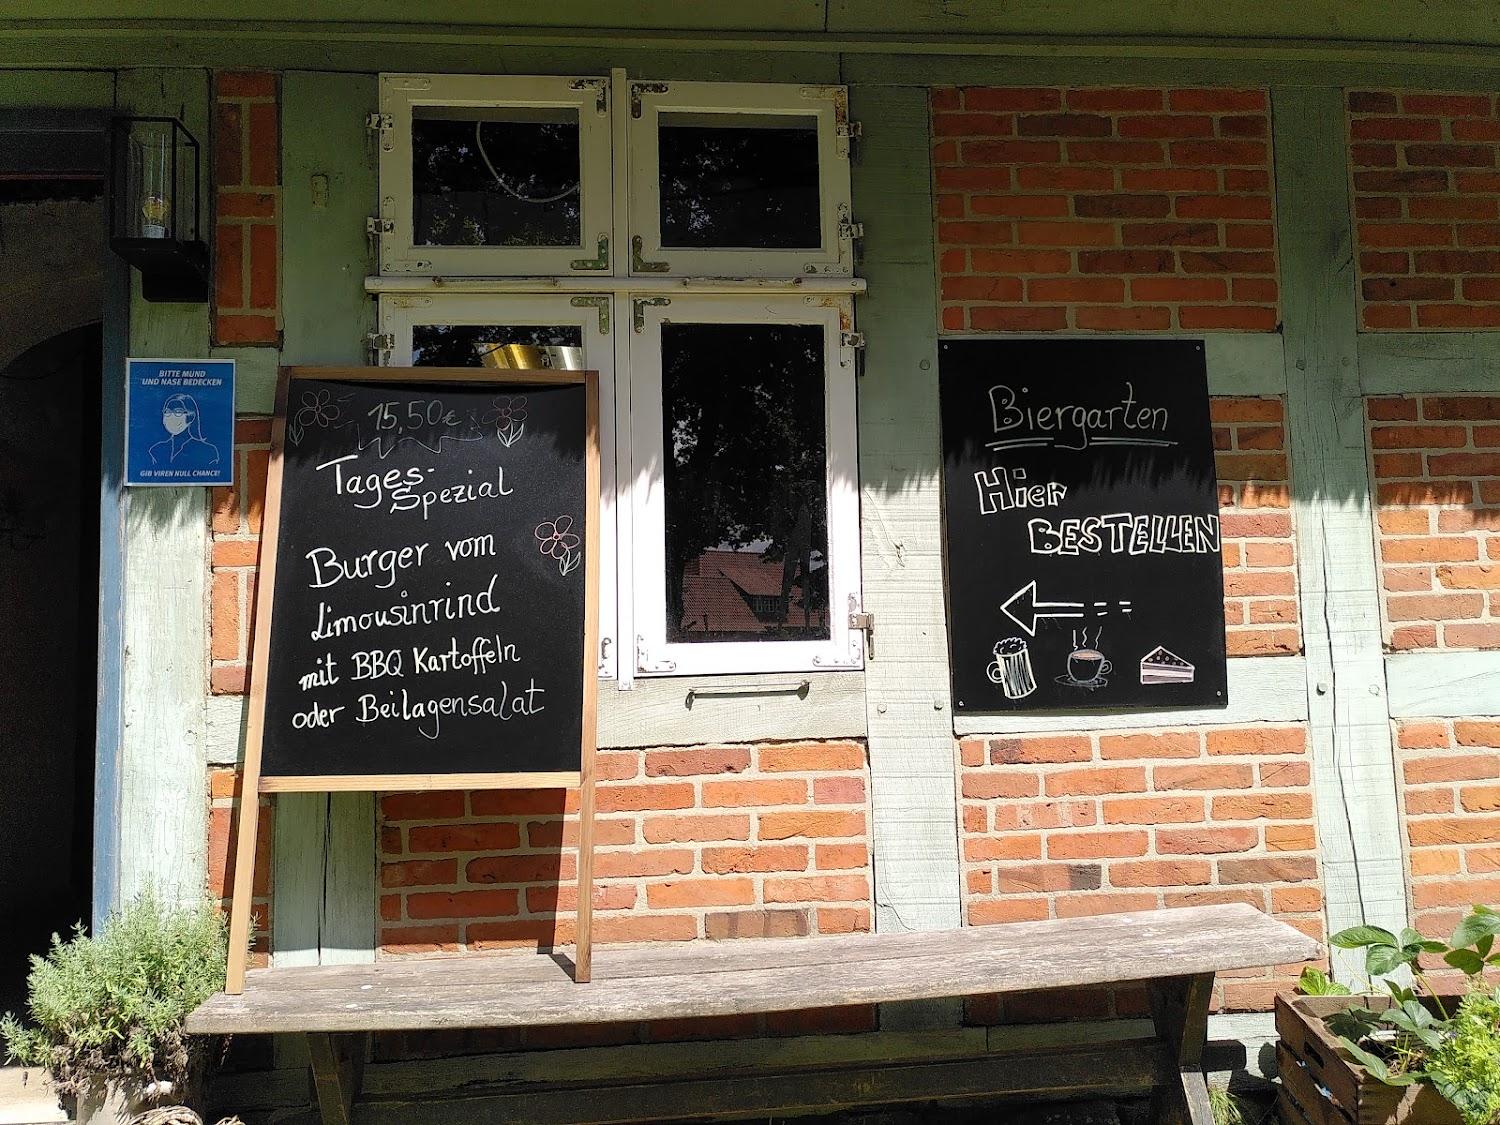 BITTE MUND
UND NASE BEDECKEN
GIB VIREN NULL CHANCE!
15,50€
Tages-
Spezial
Burger vom
Limousinrind
mit BBQ Kartoffeln
oder Beilagensalat
Biergarten
Hier
BESTELLEN